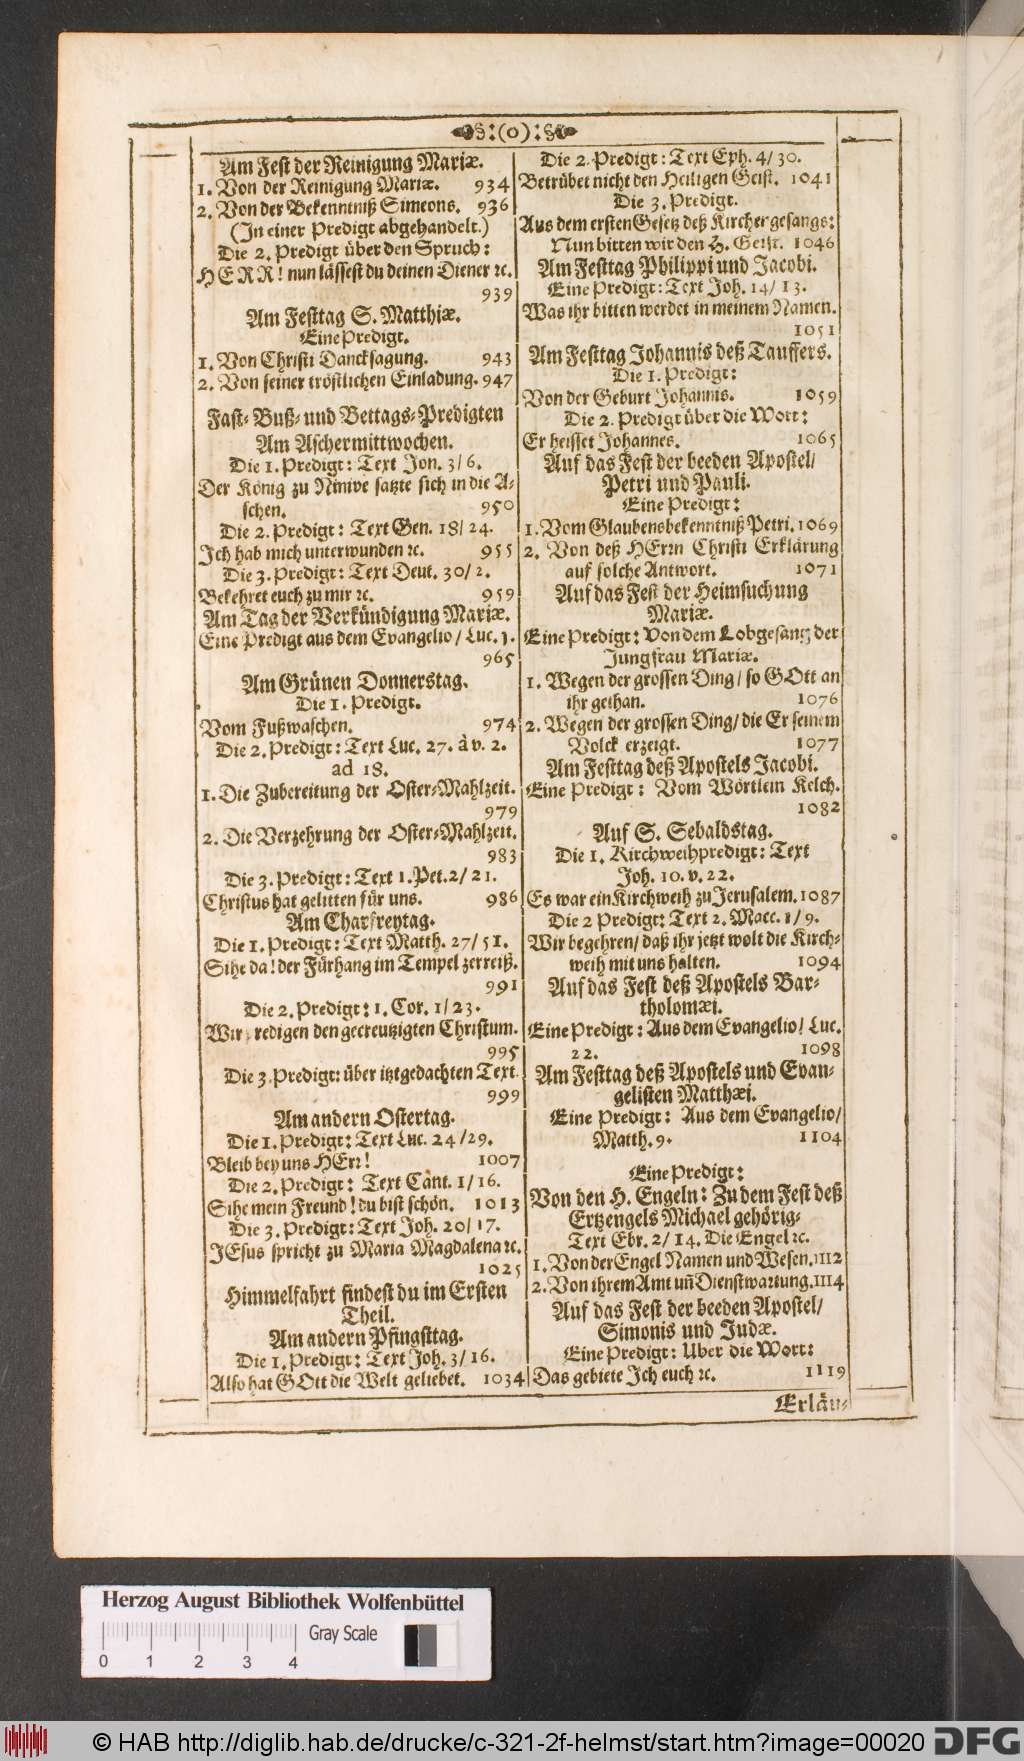 :(o):
Am Fest der Reinigung Mariæ.
1. Von der Reinigung Mariæ. 934
2. Von der Bekenntniß Simeons. 936
(In einer Predigt abgehandelt.)
Die 2. Predigt über den Spruch:
HERR! nun lässest du deinen Diener ꝛc.
939
Am Festtag S. Matthiæ.
Eine Predigt.
1. Von Christi Dancksagung. 943
2. Von seiner tröstlichen Einladung. 947
Fast- Buß- und Bettags-Predigten
Am Aschermittwochen.
Die 1. Predigt: Text Jon. 3/6.
Der König zu Ninive satzte sich in die A-
schen. 950
Die 2. Predigt: Text Gen. 18/24.
Ich hab mich unterwunden ꝛc. 955
Die 3. Predigt: Text Deut. 30/2.
Bekehret euch zu mir ꝛc. 959
Am Tag der Verkündigung Mariæ.
Eine Predigt aus dem Evangelio/ Luc. 1.
965
Am Grünen Donnerstag.
Die 1. Predigt.
Vom Fußwaschen. 974
Die 2. Predigt: Text Luc. 27. à v. 2.
ad 18.
1. Die Zubereitung der Oster-Mahlzeit.
979
2. Die Verzehrung der Oster-Mahlzeit.
983
Die 3. Predigt: Text 1. Pet. 2/21.
Christus hat gelitten für uns. 986
Am Charfreytag.
Die 1. Predigt: Text Matth. 27/51.
Sihe da! der Fürhang im Tempel zerreiß.
991
Die 2. Predigt: 1. Cor. 1/23.
Wir predigen den gecreutzigten Christum.
995
Die 3. Predigt: über itztgedachten Text
999
Am andern Ostertag.
Die 1. Predigt: Text Luc. 24/29.
Bleib bey uns HErr! 1007
Die 2. Predigt: Text Cant. 1/16.
Sihe mein Freund! du bist schön. 1013
Die 3. Predigt: Text Joh. 20/17.
JEsus spricht zu Maria Magdalena ꝛc.
1025
Himmelfahrt findest du im Ersten
Theil.
Am andern Pfingsttag.
Die 1. Predigt: Text Joh. 3/16.
Also hat GOtt die Welt geliebet. 1034
Die 2. Predigt: Text Eph. 4/30.
Betrübet nicht den Heiligen Geist. 1041
Die 3. Predigt.
Aus dem ersten Gesetz deß Kirchengesangs:
Nun bitten wir den H. Geist. 1046
Am Festtag Philippi und Jacobi.
Eine Predigt: Text Joh. 14/13.
Was ihr bitten werdet in meinem Namen.
1051
Am Festtag Johannis deß Tauffers.
Die 1. Predigt:
Von der Geburt Johannis. 1059
Die 2. Predigt über die Wort:
Er heisset Johannes. 1065
Auf das Fest der beeden Apostel/
Petri und Pauli.
Eine Predigt:
1. Vom Glaubensbekenntniß Petri. 1069
2. Von deß HErrn Christi Erklärung
auf solche Antwort. 1071
Auf das Fest der Heimsuchung
Mariæ.
Eine Predigt: Von dem Lobgesang der
Jungfrau Mariæ.
1. Wegen der grossen Ding/ so GOtt an
ihr gethan. 1076
2. Wegen der grossen Ding/ die Er seinem
Volck erzeigt. 1077
Am Festtag deß Apostels Jacobi.
Eine Predigt: Vom Wörtlein Kelch.
1082
Auf S. Sebaldstag.
Die 1. Kirchweihpredigt: Text
Joh. 10. v. 22.
Es war ein Kirchweih zu Jerusalem. 1087
Die 2 Predigt: Text 2. Macc. 1/9.
Wir begehren/ daß ihr jetzt wolt die Kirch-
weih mit uns halten. 1094
Auf das Fest deß Apostels Bar-
tholomæi.
Eine Predigt: Aus dem Evangelio/ Luc.
22. 1098
Am Festtag deß Apostels und Evan-
gelisten Matthæi.
Eine Predigt: Aus dem Evangelio/
Matth. 9. 1104
Eine Predigt:
Von den H. Engeln: Zu dem Fest deß
Ertzengels Michael gehörig-
Text Ebr. 2/14. Die Engel ꝛc.
1. Von der Engel Namen und Wesen. 1112
2. Von ihrem Amt uñ Dienstwartung. 1114
Auf das Fest der beeden Apostel/
Simonis und Judæ.
Eine Predigt: Uber die Wort:
Das gebiete Ich euch ꝛc. 1119
Erläu-
Herzog August Bibliothek Wolfenbüttel
Gray Scale
0 1 2 3 4
© HAB http://diglib.hab.de/drucke/c-321-2f-helmst/start.htm?image=00020
DFG